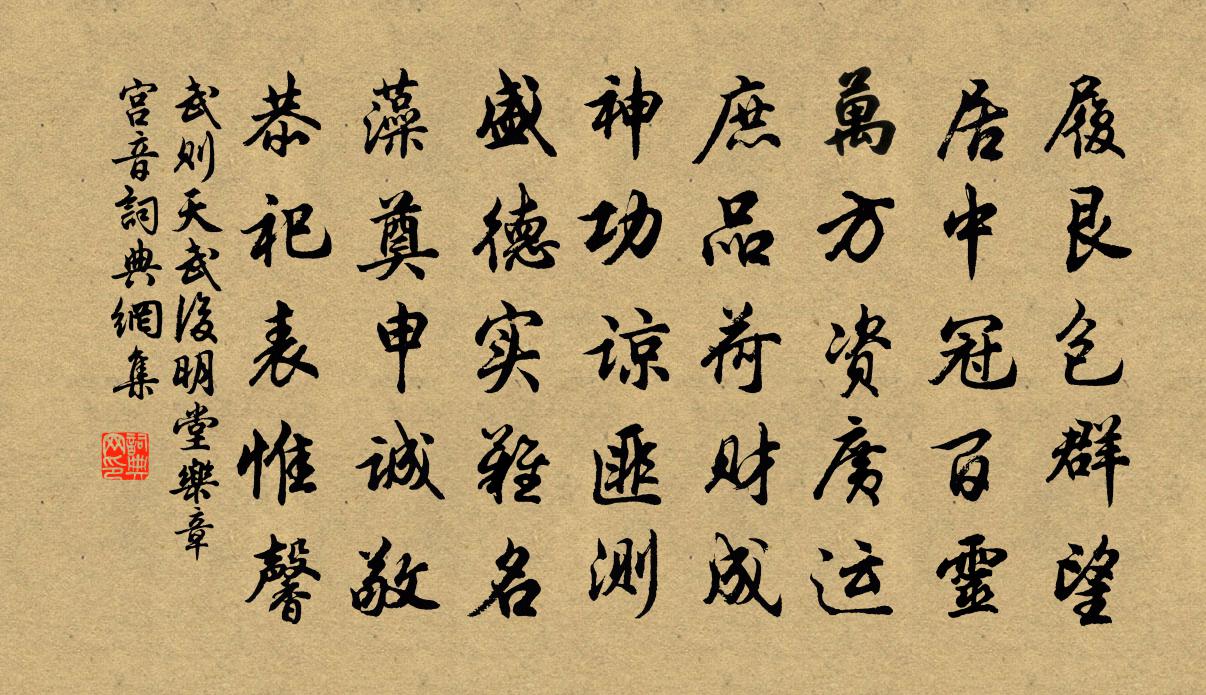 履艮包群望
居中冠百靈
萬方资廣运
庶品荷财成
神功谅匪测
盛德实難名
藻奠申诚敬
恭祀表惟馨
武则天武後明堂樂章
宫音詞典網集
詞典网印